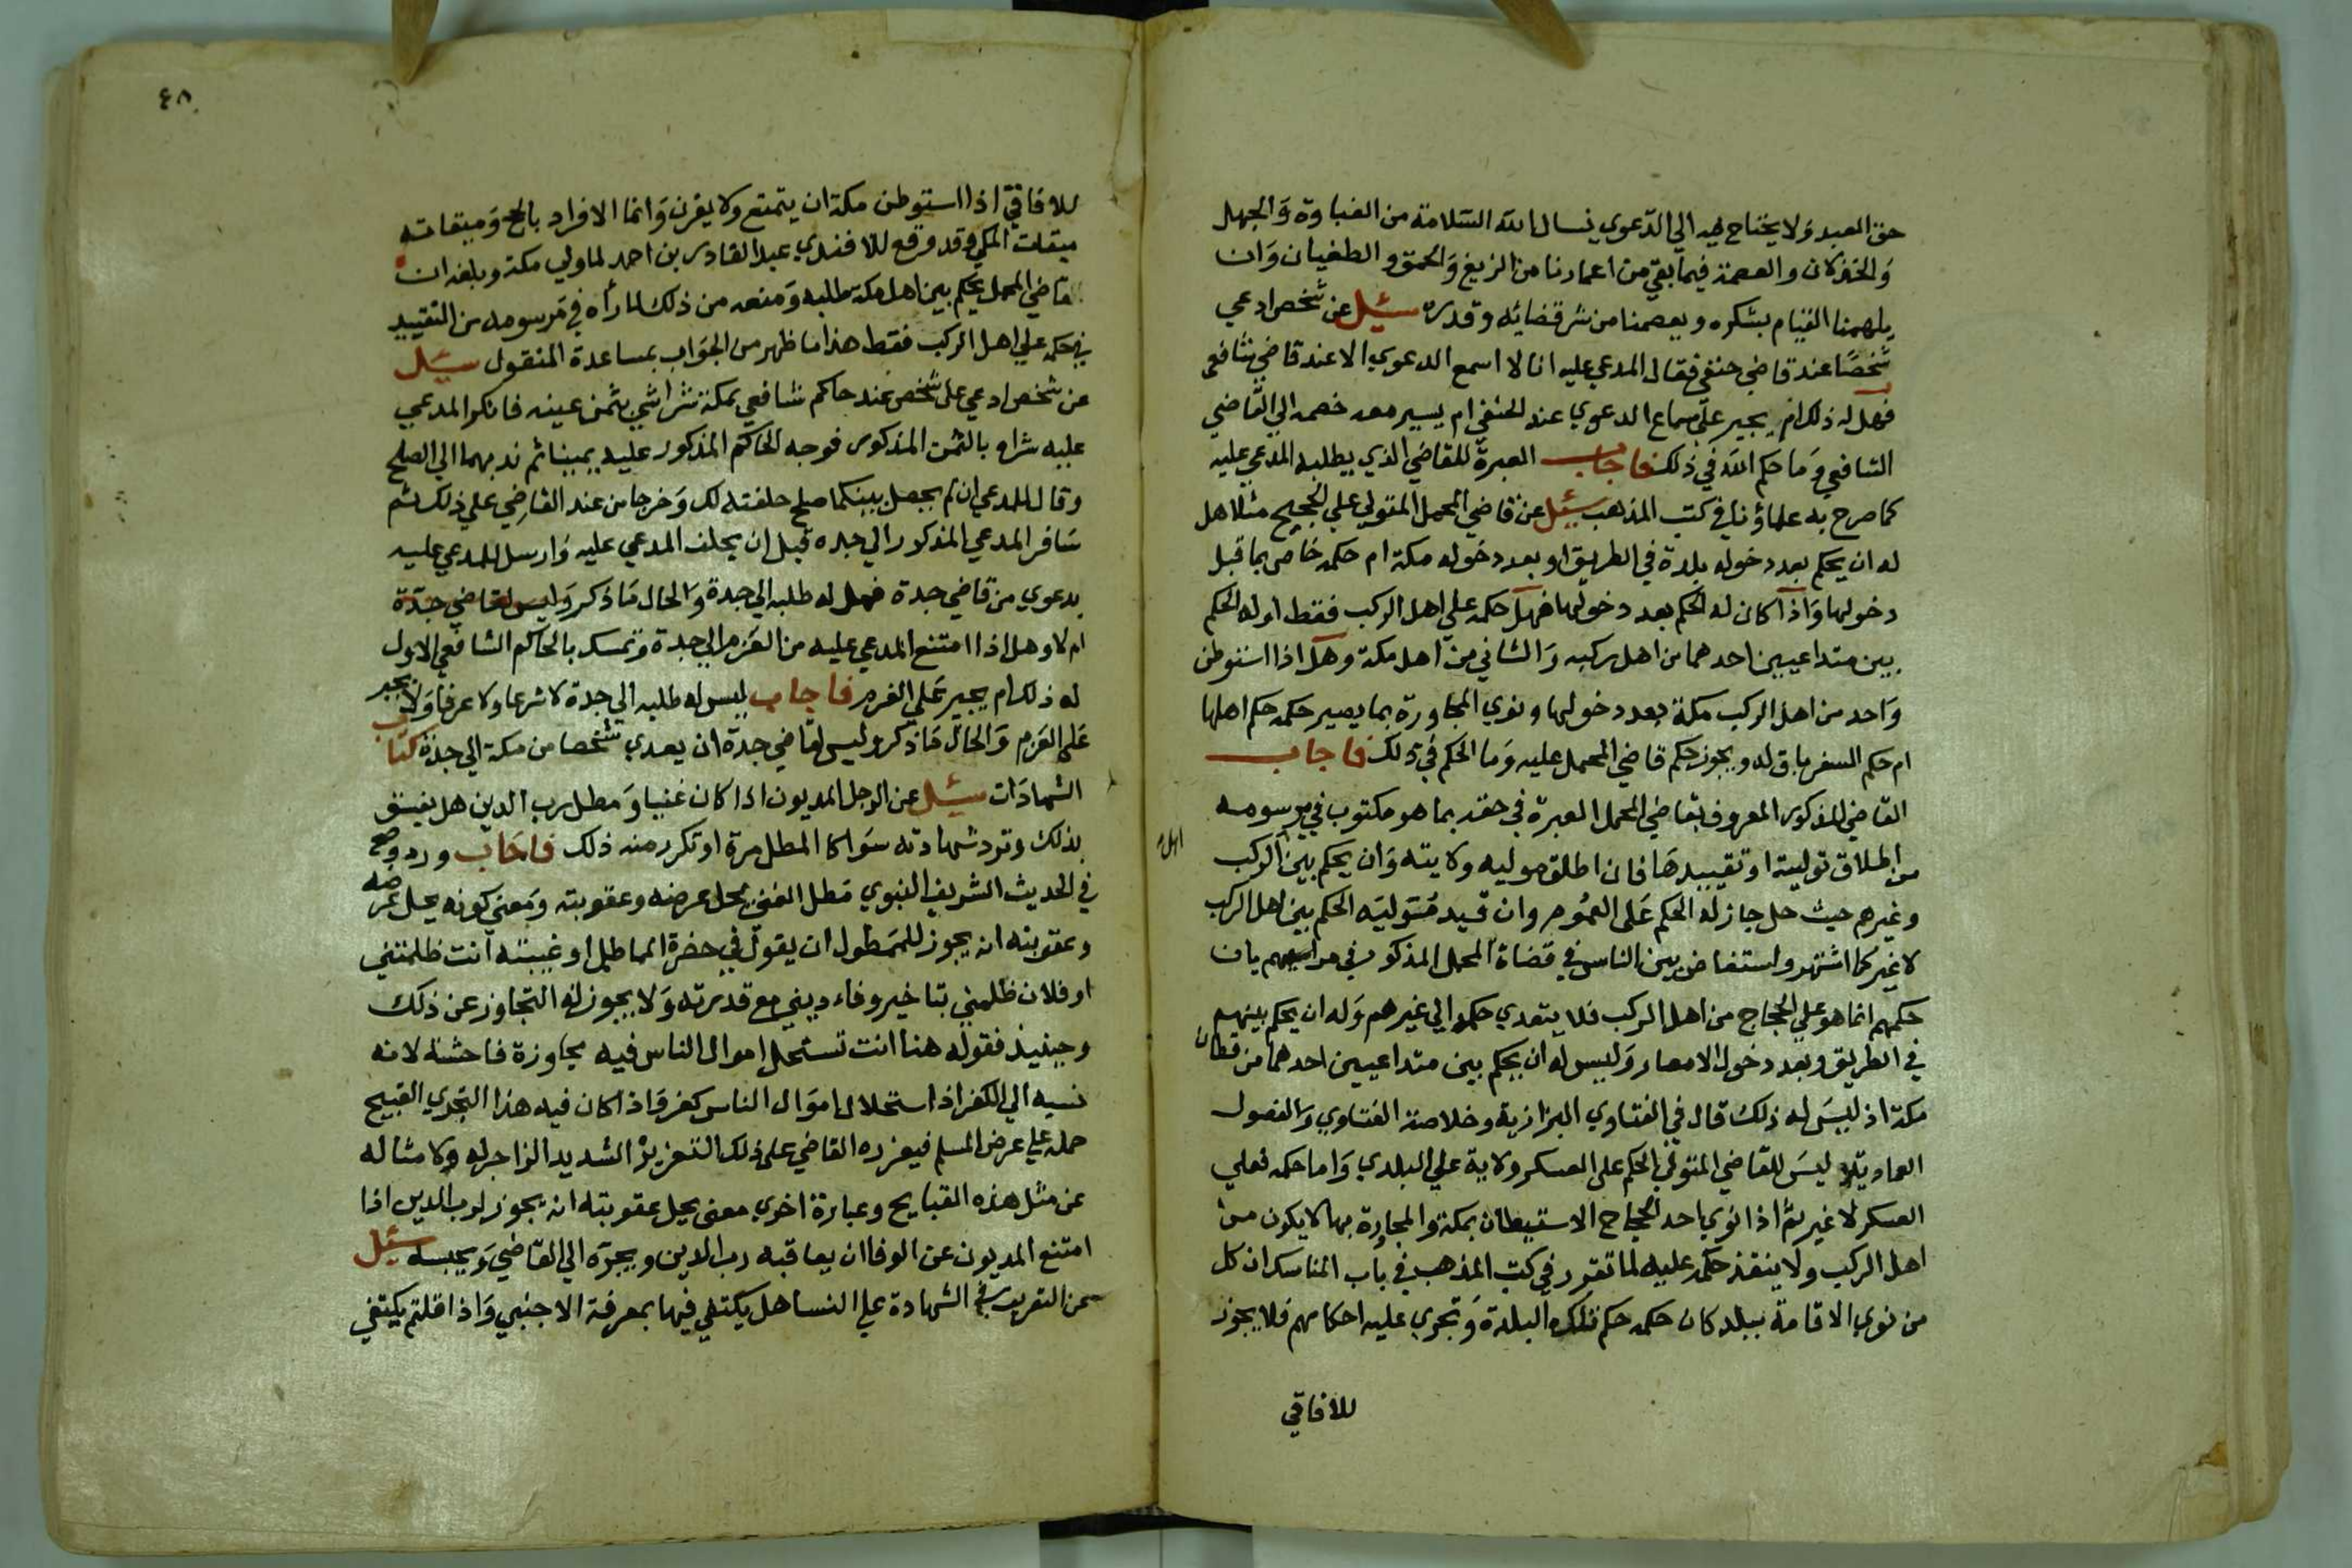 حق العبد ولا يحتاج فيه الي الدعوي نسال الله السلامة من الغباوة والجهل
والخذلان والعصمة فيما بقي من اعمارنا من الزيغ والحمق والطغيان وان
يلهمنا القيام بشكره ويعصمنا من شر قضائه وقدره سئل عن شخص ادعي
شخصا عند قاضي حنفي فقال المدعي عليه انا لا اسمع الدعوي الا عند قاضي شافعي
فهل له ذلك ام يجبر علي سماع الدعوي عند الحنفي ام يسير معه خصمه الي القاضي
الشافعي وما حكم الله في ذلك فاجاب العبرة للقاضي الذي يطلبه المدعي عليه
كما صرح به علماؤنا في كتب المذهب سئل عن قاضي المحمل المتولي علي الحجيج مثلا هل
له ان يحكم بعد دخوله بلدة في الطريق او بعد دخوله مكة ام حكمه خاص بما قبل
دخولها واذا كان له الحكم بعد دخولها فهل حكمه علي اهل الركب فقط او له الحكم
بين متداعيين احدهما من اهل ركبه والثاني من اهل مكة وهل اذا استوطن
واحد من اهل الركب مكة بعد دخولها ونوي المجاورة بما يصير حكمه حكم اهلها
ام حكم السفر باق له ويجوز حكم قاضي المحمل عليه وما الحكم في ذلك فاجاب
القاضي المذكور المعروف بقاضي المحمل العبرة في حقه بما هو مكتوب في مرسومه
من اطلاق توليته او تقييدها فان اطلق موليه ولايته وان يحكم بين الركب
اهل
وغيرهم حيث حل جاز له الحكم علي العموم وان قيد متوليه الحكم بين اهل الركب
لا غير كما اشتهر واستفاض بين الناس في قضاة المحمل المذكور في مراسيمهم بان
حكمهم انما هو علي الحجاج من اهل الركب فلا يتعدي حكمه الي غيرهم وله ان يحكم بينهم
في الطريق وبعد دخول الامصار وليس له ان يحكم بين متداعيين احدهما من قطان
مكة اذ ليس له ذلك قال في الفتاوي البزازية وخلاصة الفتاوي والفصول
العمادية ليس للقاضي المتولي الحكم علي العسكر ولاية علي البلدي واما حكمه فعلي
العسكر لا غير ثم اذا نوي احد الحجاج الاستيطان بمكة والمجاورة بها لا يكون من
اهل الركب ولا ينفذ حكمه عليه لما تقرر في كتب المذهب في باب المناسك ان كل
من نوي الاقامة ببلد كان حكمه حكم تلك البلدة وتجري عليه احكامهم فلا يجوز
للافاقي
٤٨
للافاقي اذا استوطن مكة ان يتمتع ولا يقرن وانما الافراد بالحج وميقاته
ميقات المكي وقد وقع للافندي عبد القادر بن احمد لما ولي مكة وبلغه ان
قاضي المحمل يحكم بين اهل مكة طالبه ومنعه من ذلك لما رأه في مرسومه من التقييد
في حكمه علي اهل الركب فقط هذا ما ظهر من الجواب بمساعدة المنقول سئل
عن شخص ادعي علي شخص عند حاكم شافعي بمكة شراشي بثمن عينه فانكر المدعي
عليه شراه بالثمن المذكور فوجه الحاكم المذكور عليه يمينا ثم ندبهما الي الصلح
وقال للمدعي ان لم يحصل بينكما صلح حلفته لك وخرجا من عند القاضي علي ذلك ثم
سافر المدعي المذكور الي جده قبل ان يحلف المدعي عليه وارسل للمدعي عليه
بدعوي من قاضي جدة فهل له طلبه الي جدة والحال ما ذكر وليس لقاضي جدة
ام لا وهل اذا امتنع المدعي عليه من العزم الي جدة وتمسك بالحاكم الشافعي الاول
له ذلك ام يجبر علي العزم فاجاب ليس له طلبه الي جدة لا شرعا ولا عرفا ولا يجبر
علي العزم والحال ما ذكر وليس لقاضي جدة ان يعدي شخصا من مكة الي جدة كتاب
الشهادات سئل عن الرجل المديون اذا كان غنيا ومطل رب الدين هل يفسق
بذلك وترد شهادته سوا كا المطل مرة او تكرر منه ذلك فاجاب ورد وصح
في الحديث الشريف النبوي مطل الغني يحل عرضه وعقوبته ومعني كونه يحل عرضه
وعقوبته انه يجوز للممطول ان يقول في حضرة المماطل او غيبته انت ظلمتني
او فلان ظلمني بتاخير وفاء ديني مع قدرته ولا يجوز له التجاوز عن ذلك
وحينيذ فقوله هنا انت تستحل اموال الناس فيه مجاوزة فاحشة لانه
نسبه الي الكفر اذ استحلال اموال الناس كفر واذا كان فيه هذا التجري القبيح
حمله علي عرض المسلم فيعزره القاضي علي ذلك التعزير الشديد الزاجر له ولامثاله
عن مثل هذه القبايح وعبارة اخري معني يحل عقوبته انه يجوز لرب الدين اذا
امتنع المديون عن الوفا ان يعاقبه رب الدين ويجره الي القاضي ويحبسه سئل
عن التعريف في الشهادة علي النسا هل يكتفي فيها بمعرفة الاجنبي واذا قلتم يكتفي